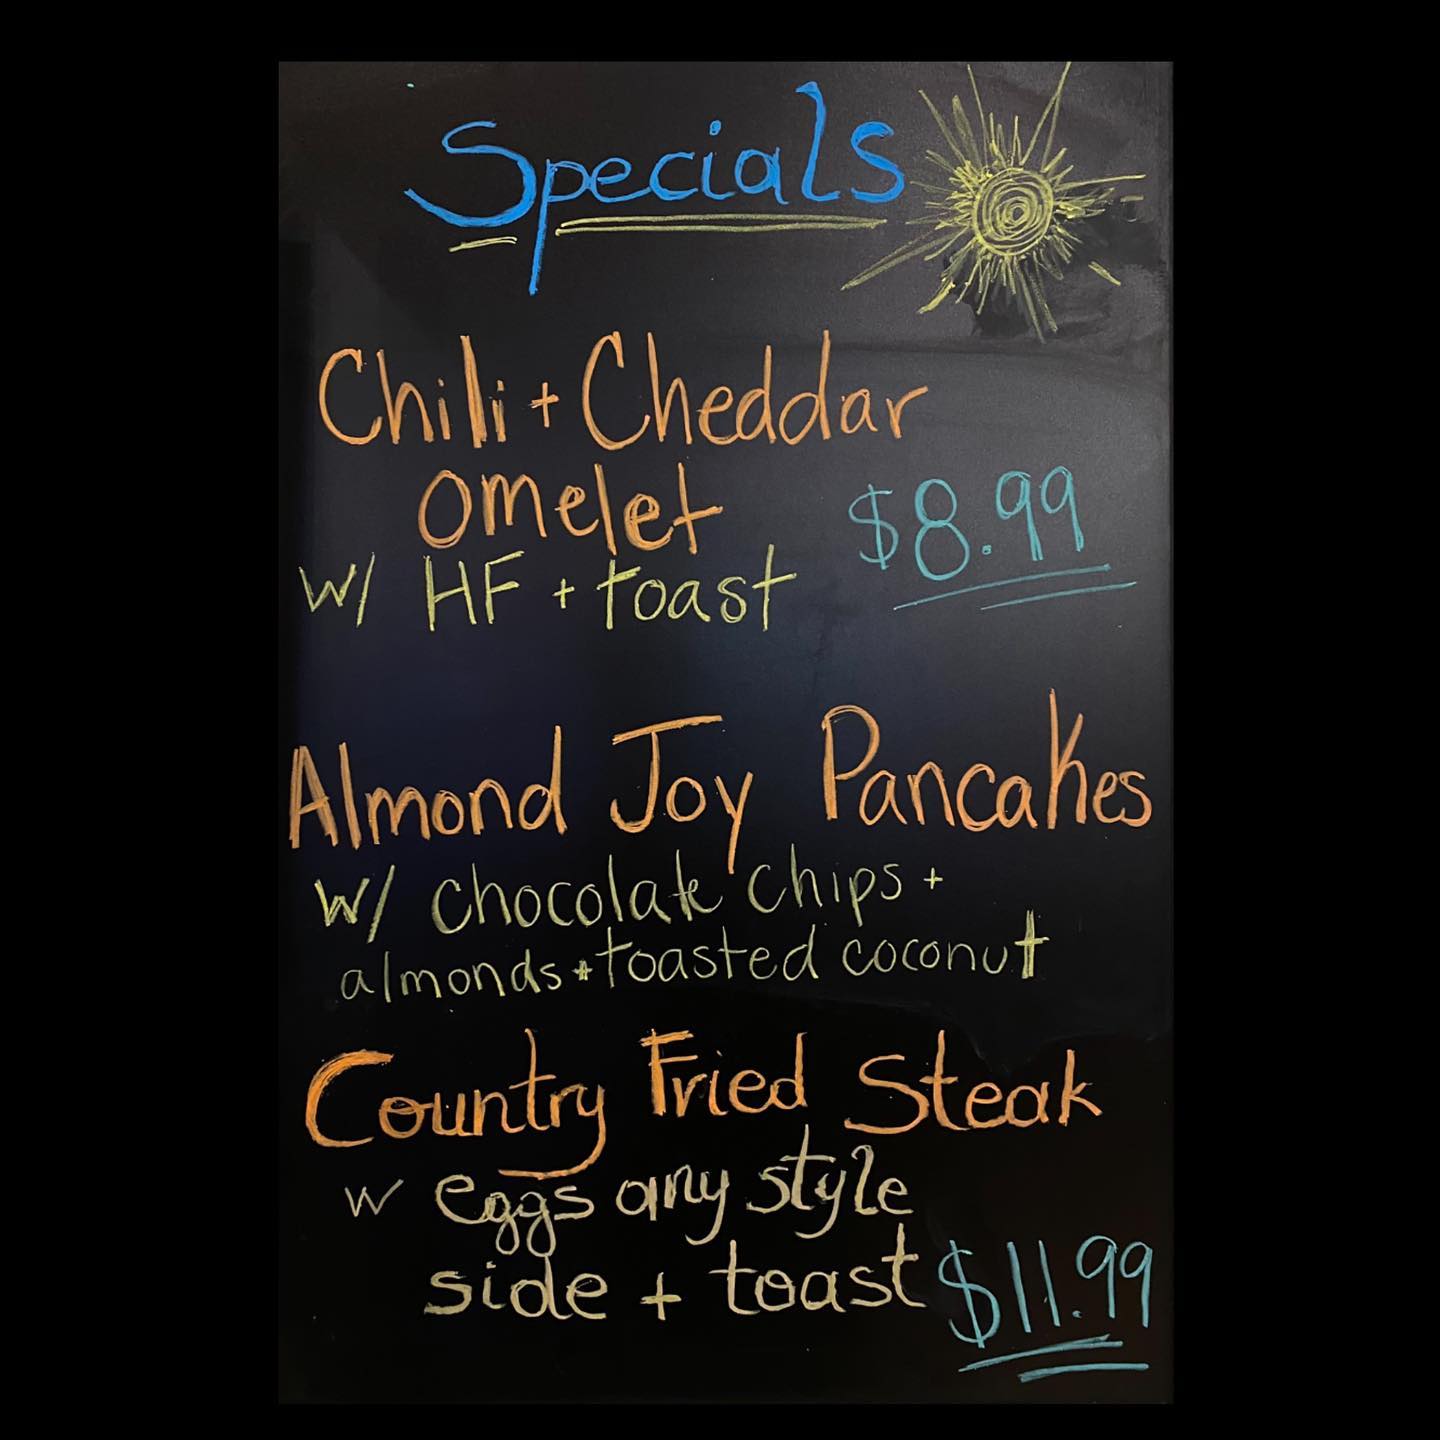 Specials
Chili + Cheddar
omelet
$8.99
w/ HF + toast
Almond Joy Pancakes
w/ chocolate chips +
almonds + toasted coconut
Country Fried Steak
w eggs any style
side + toast
$11.99